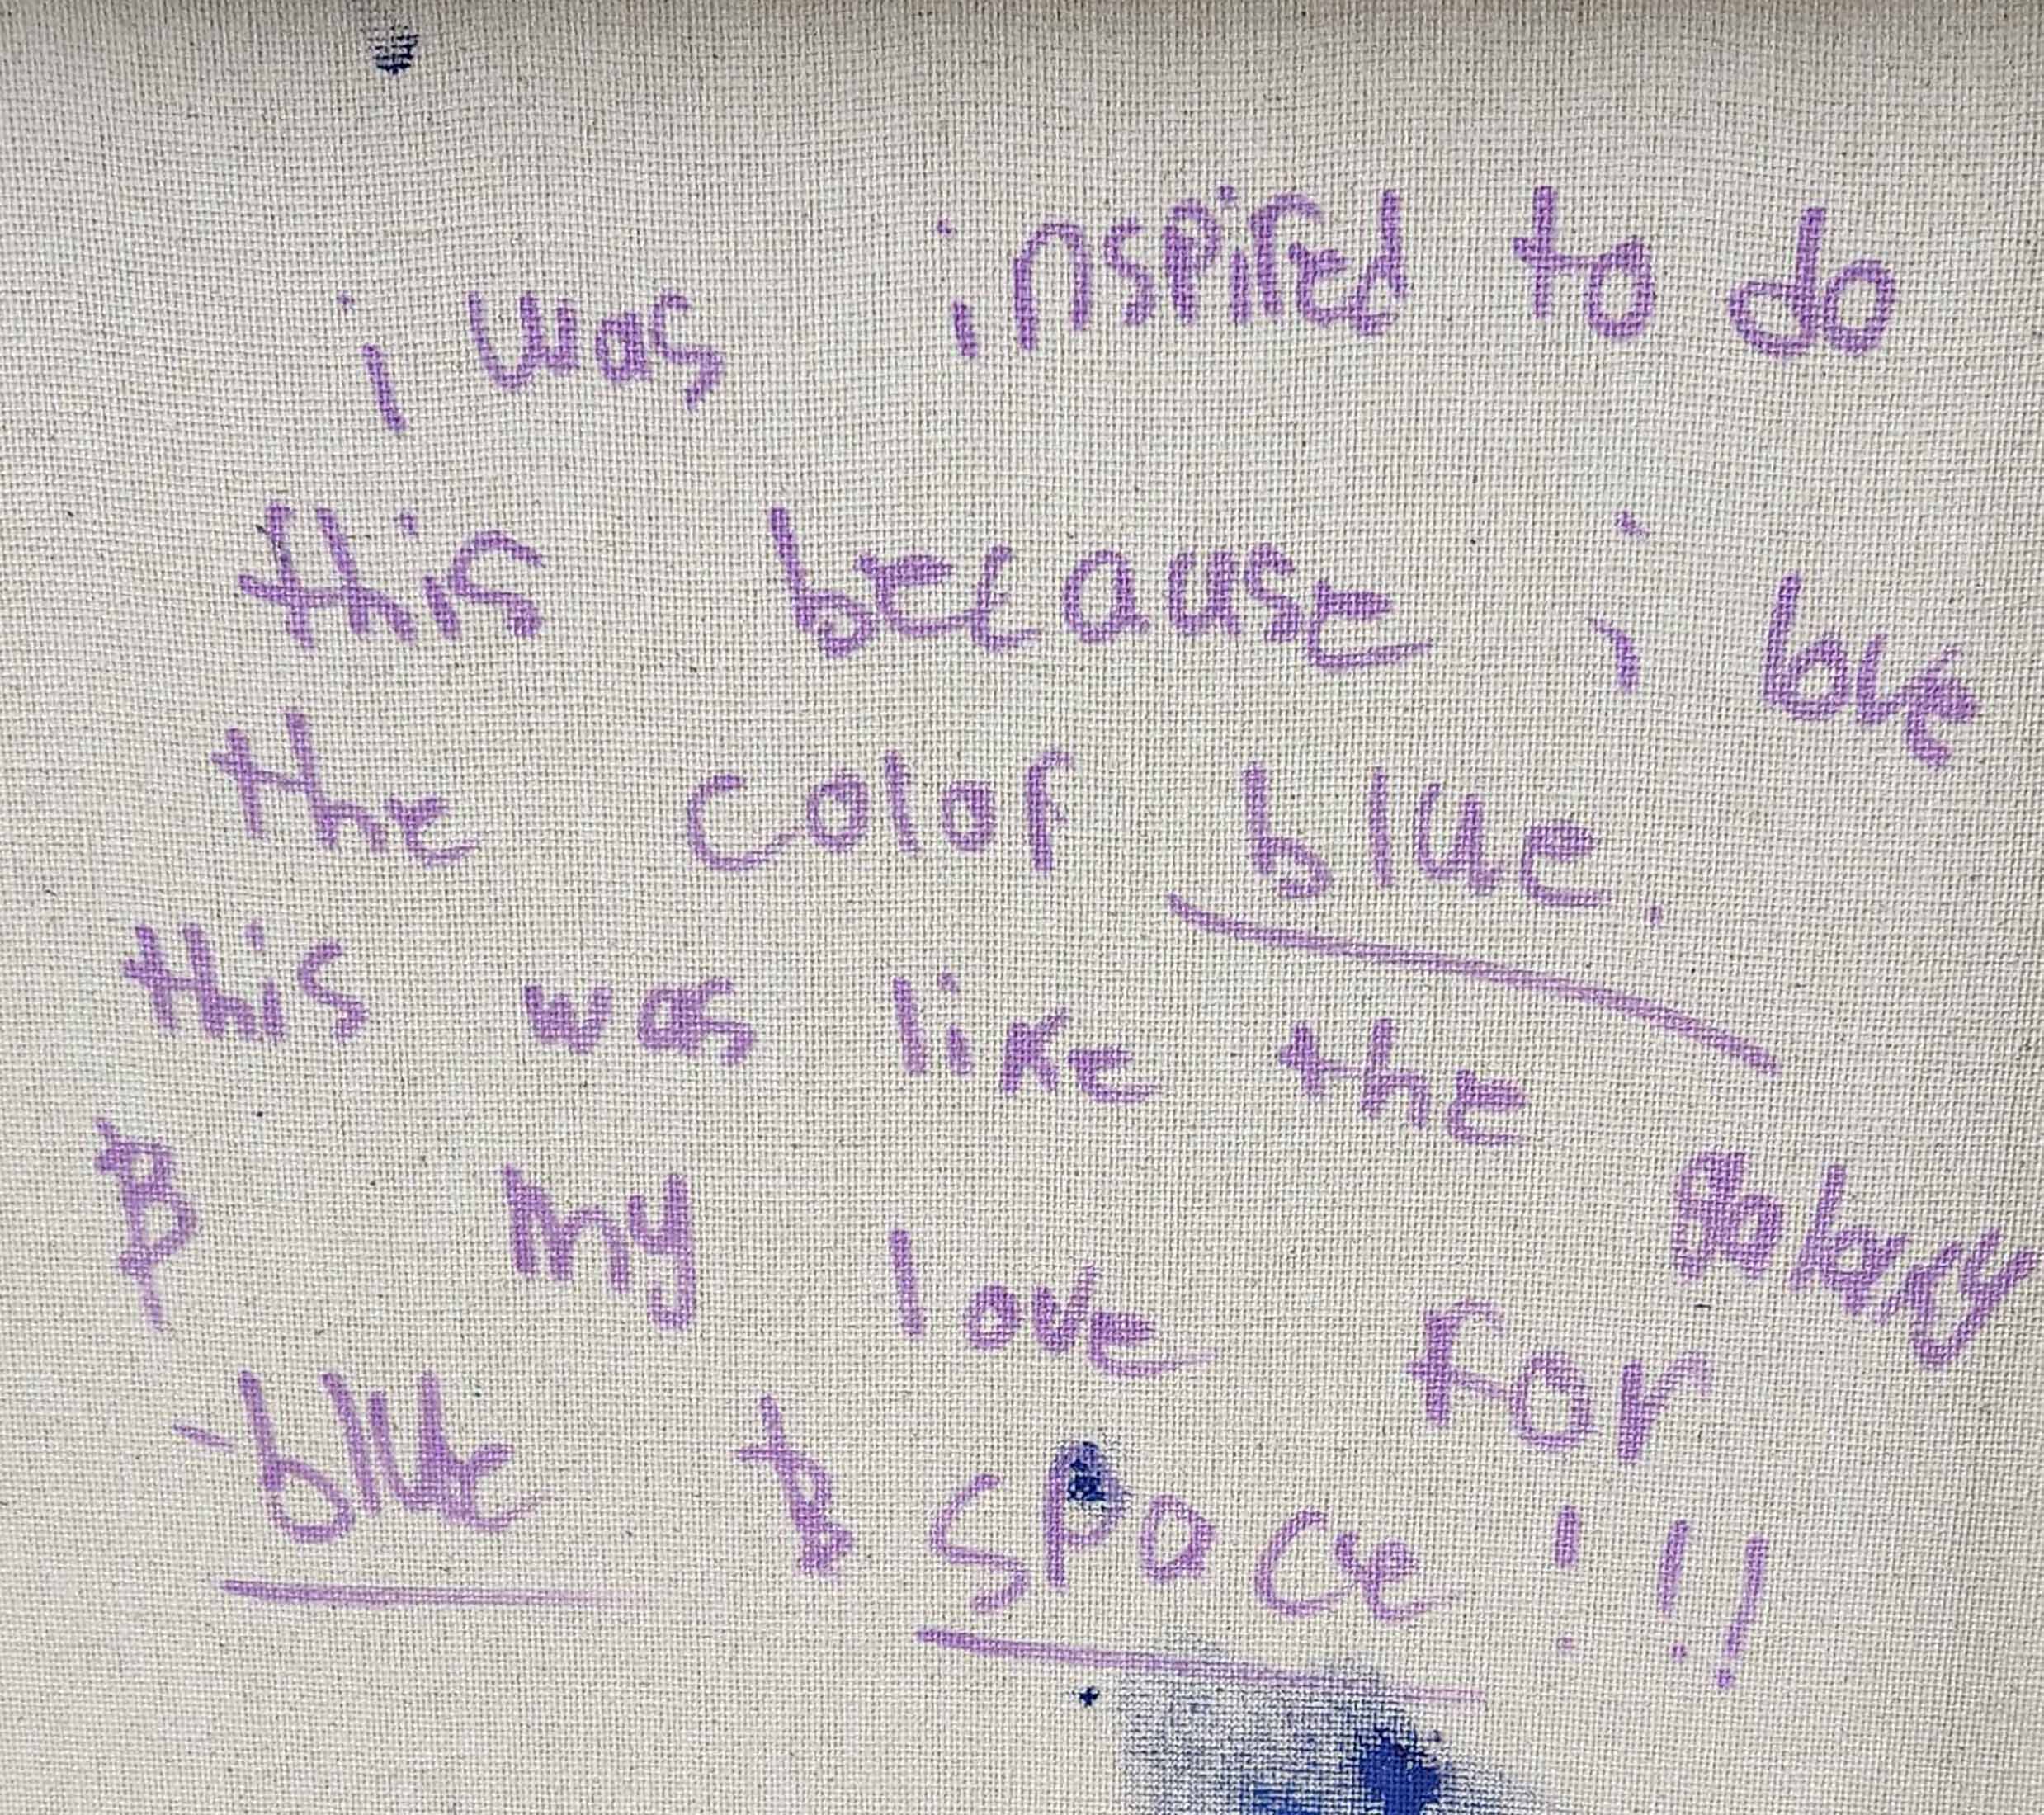 i was inspired to do
this because i love
the color blue.
this was like the galaxy
& my love for
blue & space!!!